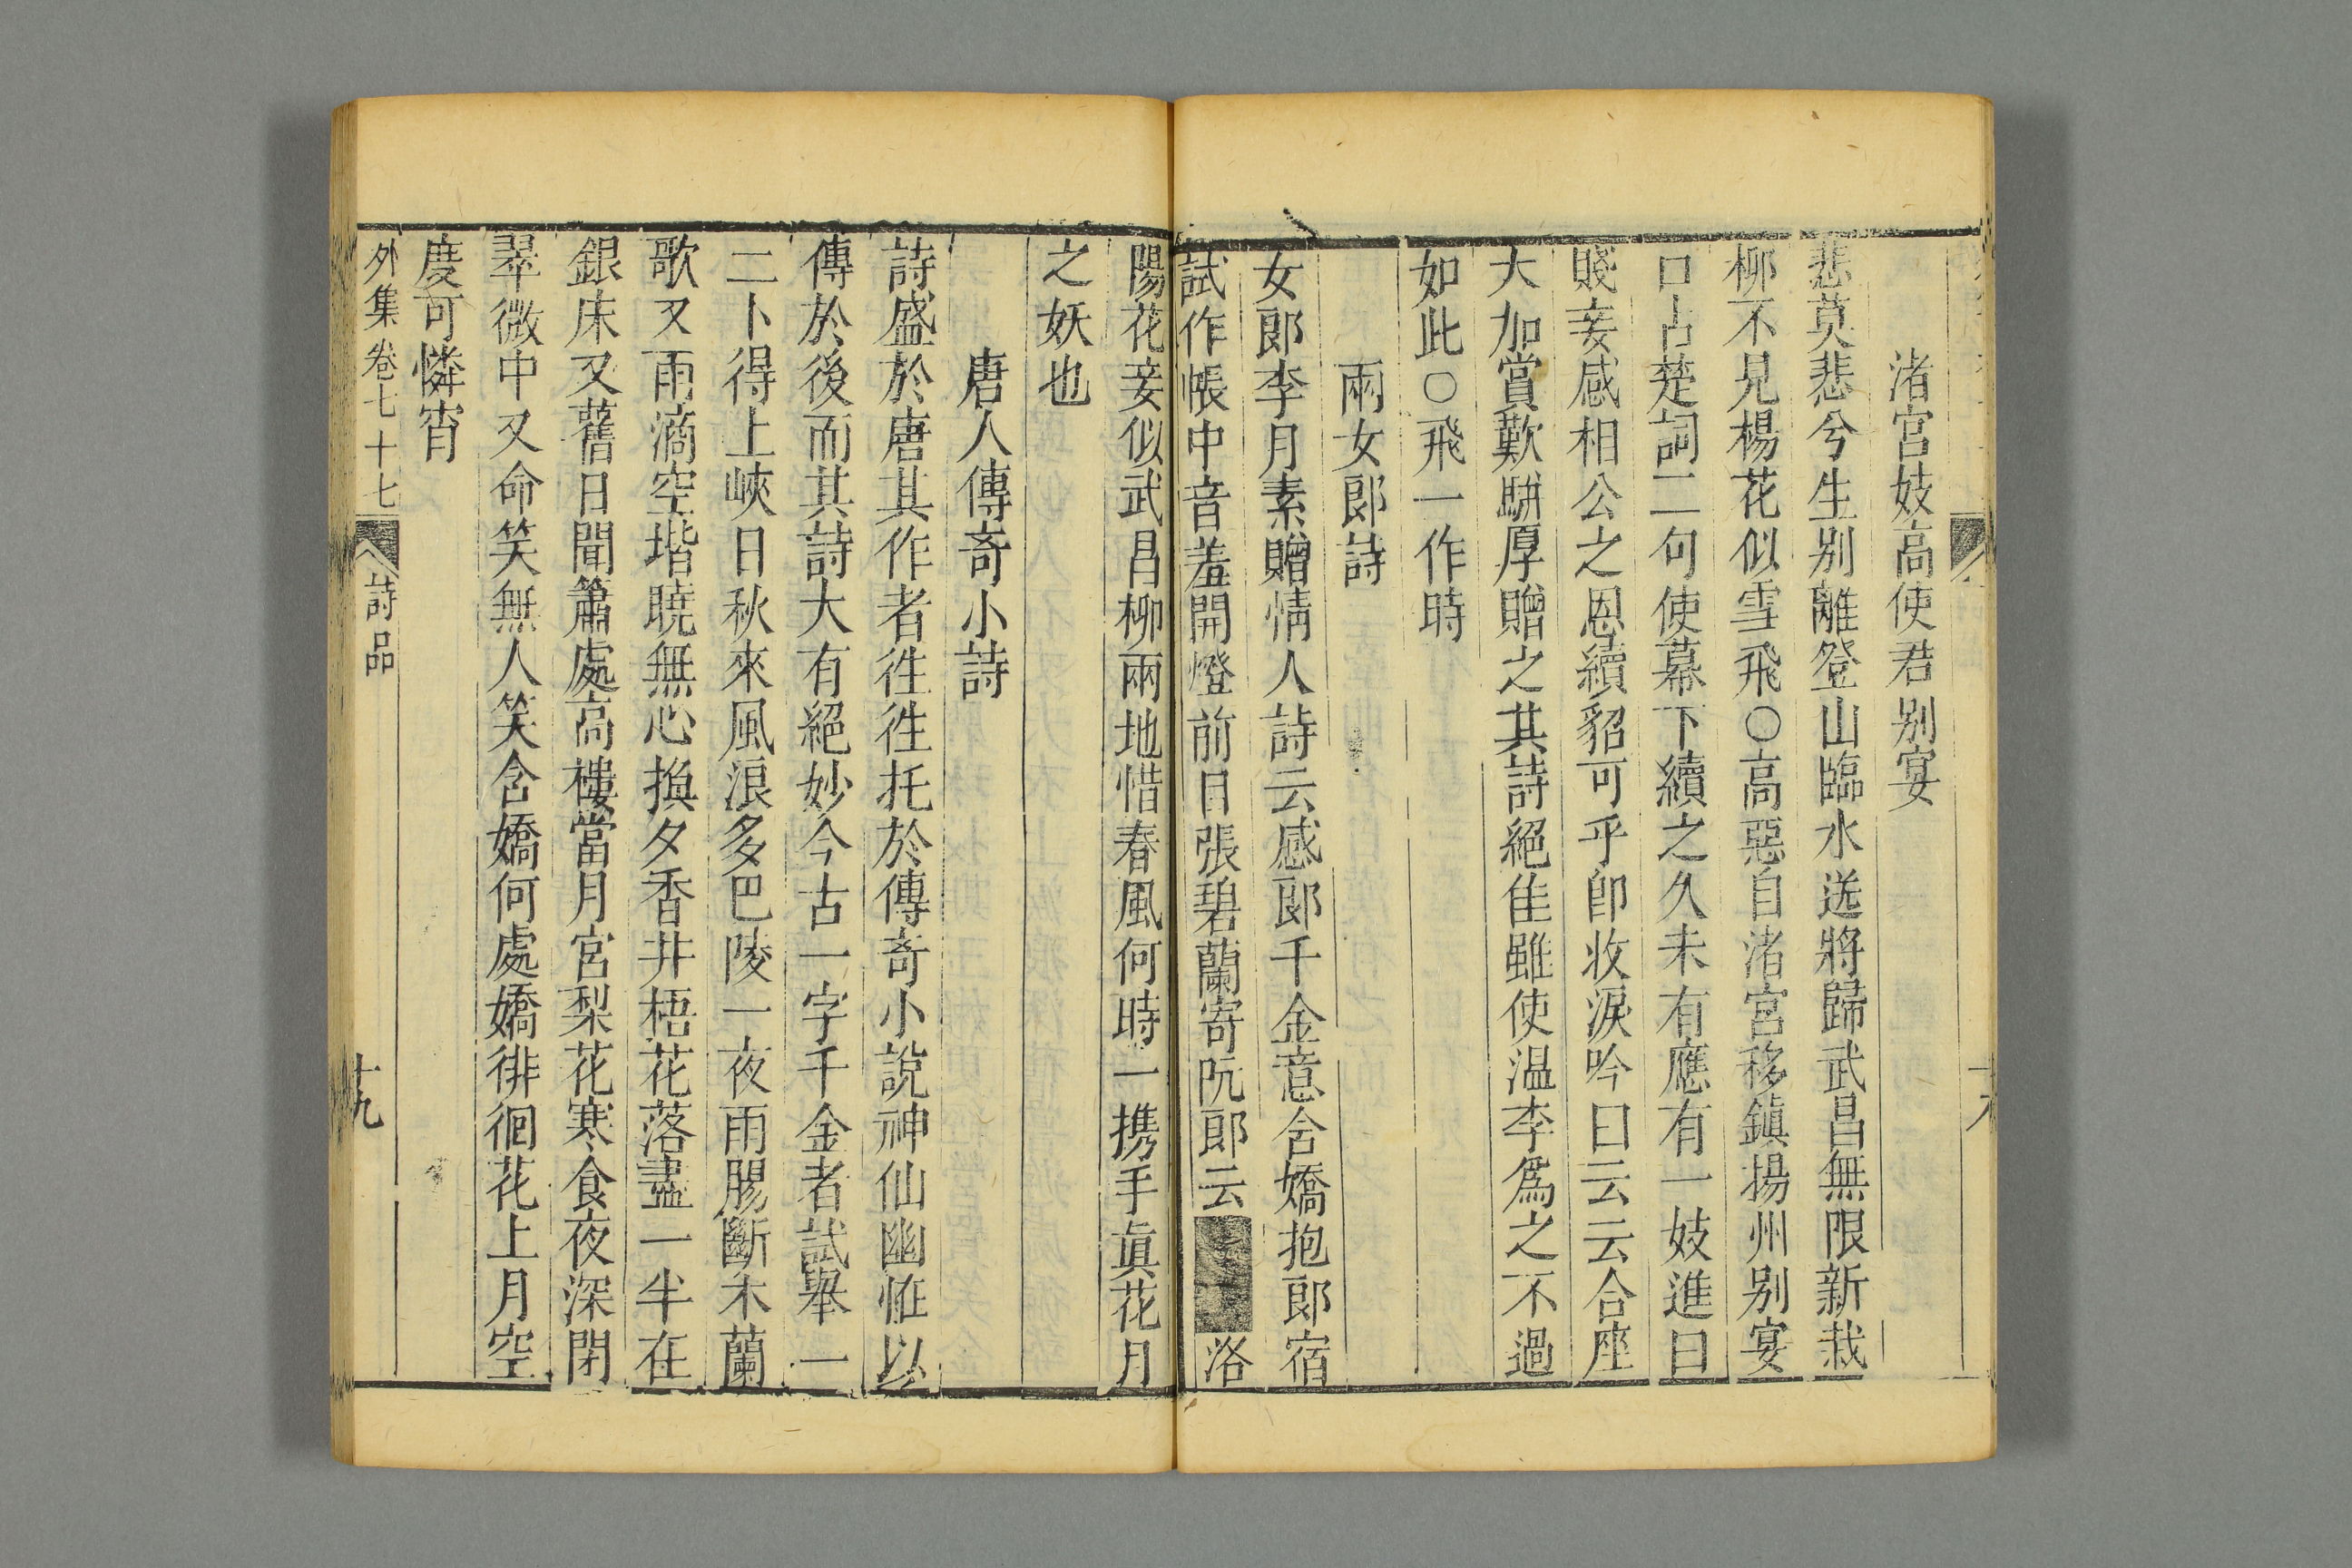 渚宮妓高使君别宴
悲莫悲兮生别離登山臨水送將歸武昌無限新栽
柳不見楊花似雪飛○高惡自渚宮移鎮揚州别宴
口占楚詞二句使幕下續之久未有應有一妓進曰
賤妾感相公之恩續貂可乎卽收淚吟曰云云合座
大加賞歎駢厚贈之其詩絕佳雖使温李爲之不過
如此○飛一作時
兩女郎詩
女郎李月素贈情人詩云感郎千金意含嬌抱郎宿
試作帳中音羞開燈前目張碧蘭寄阮郎云洛
陽花妾似武昌柳兩地惜春風何時一携手眞花月
之妖也
唐人傳奇小詩
詩盛於唐其作者徃徃托於傳奇小說神仙幽恠以
傳於後而其詩大有絕妙今古一字千金者試舉一
二卜得上峽日秋來風浪多巴陵一夜雨腸斷木蘭
歌又雨滴空堦曉無心換夕香井梧花落盡一半在
銀床又舊日聞簫處高樓當月宮梨花寒食夜深閉
翠微中又命笑無人笑含嬌何處嬌徘徊花上月空
度可憐宵
外集卷七十七
詩品
十九